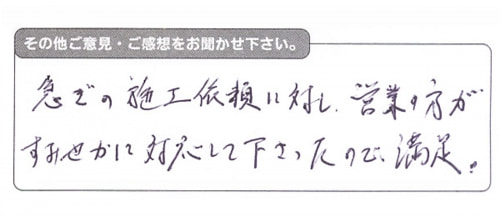 その他ご意見・ご感想をお聞かせ下さい。
急ぎの施工依頼に対し、営業の方が
すみやかに対応して下さったので、満足。